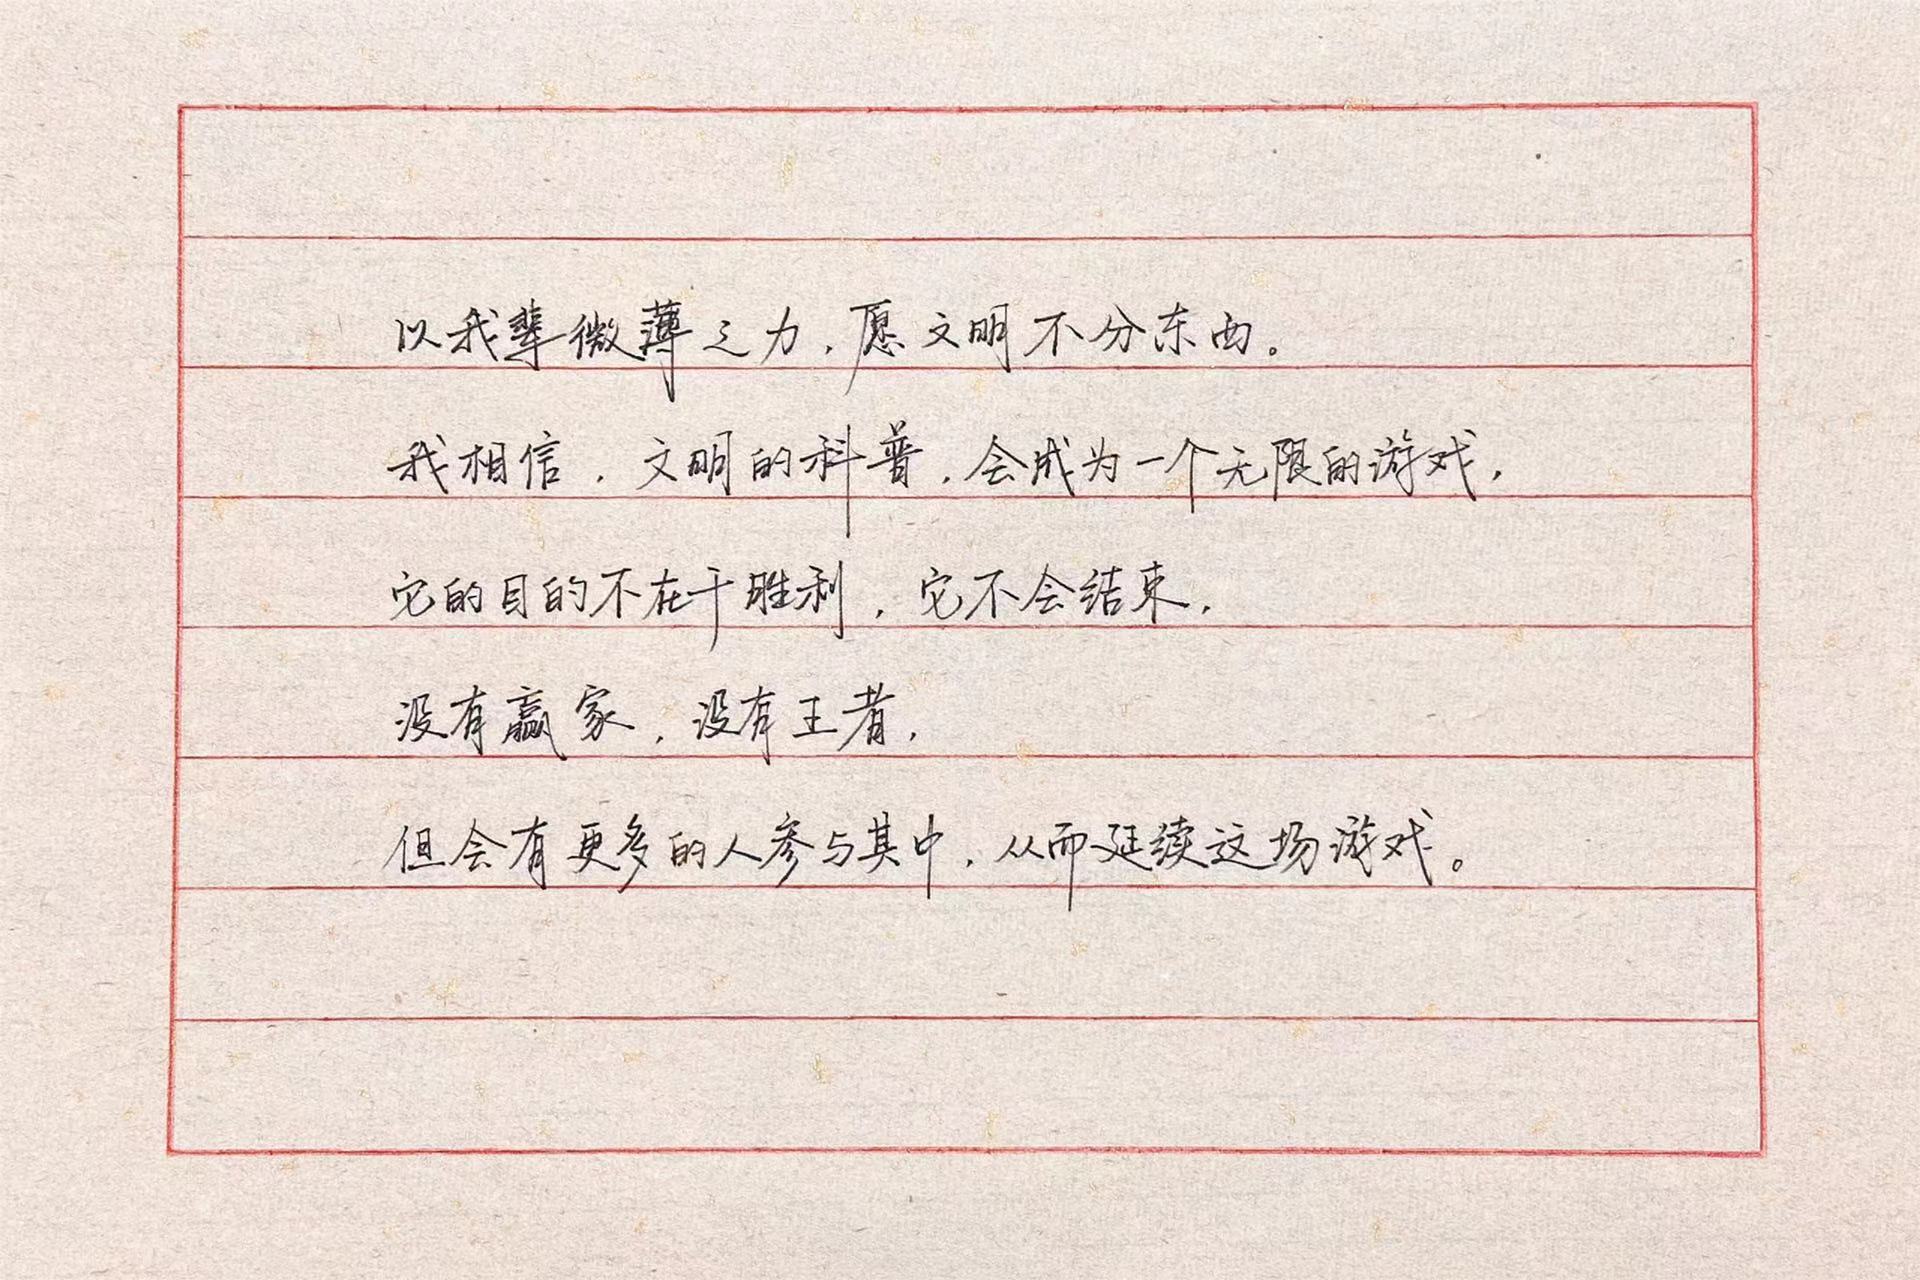 以我辈微薄之力，愿文明不分东西。
我相信，文明的科普，会成为一个无限的游戏，
它的目的不在于胜利，它不会结束，
没有赢家，没有王者，
但会有更多的人参与其中，从而延续这场游戏。